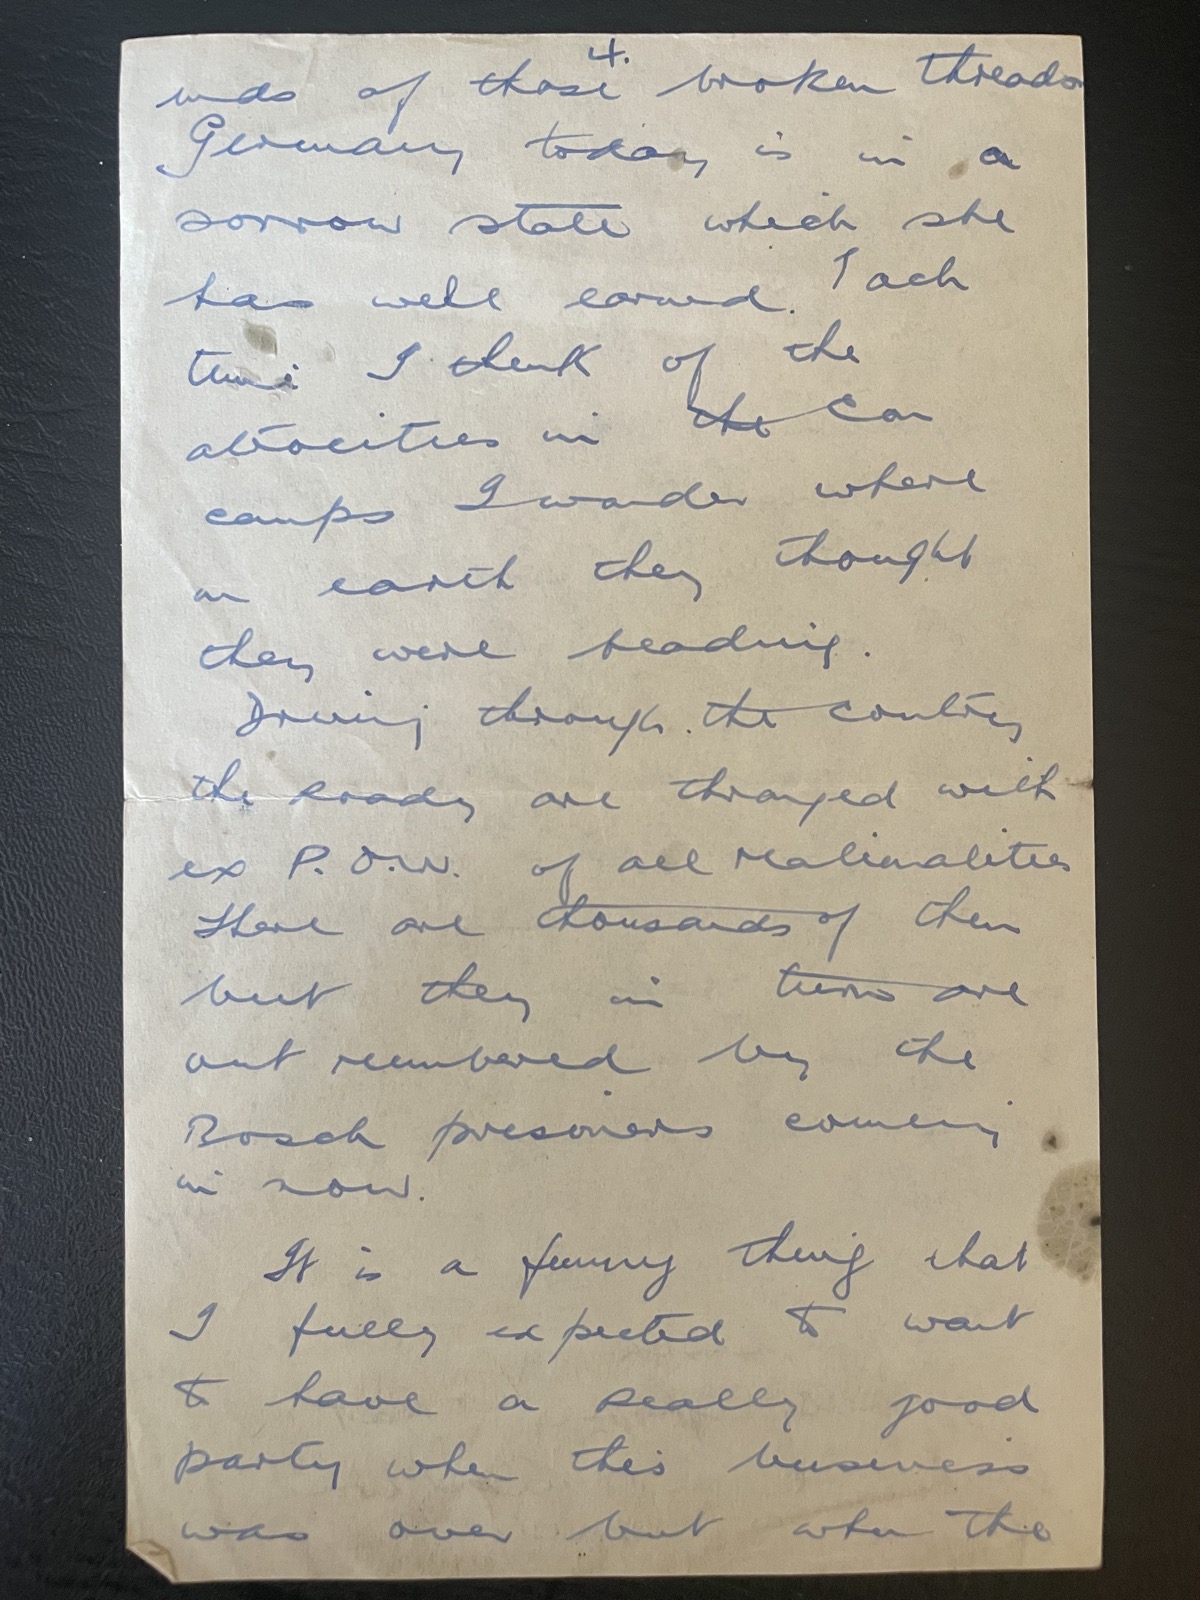 4.
ends of those broken threads
Germany today is in a
sorrow state which she
has well earned. Each
time I think of the
atrocities in the Con
camps I wonder where
on earth they thought
they were heading.
Driving through the country
the roads are thronged with
ex P.O.W. of all nationalities
there are thousands of them
but they in turn are
out numbered by the
Bosch prisoners coming
in now.
It is a funny thing that
I fully expected to want
to have a really good
party when this business
was over but when the